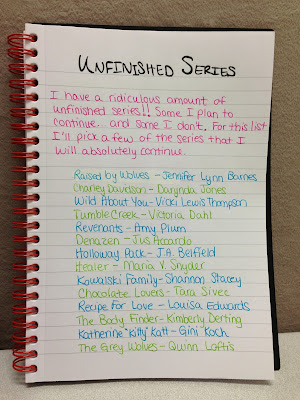 UNFINISHED SERIES
I have a ridiculous amount of
unfinished series!! Some I plan to
continue... and some I don't. For this list
I'll pick a few of the series that I
will absolutely continue.
Raised by Wolves - Jennifer Lynn Barnes
Charley Davidson - Darynda Jones
Wild About You - Vicki Lewis Thompson
Tumble Creek - Victoria Dahl
Revenants - Amy Plum
Denazen - Jus Accardo
Holloway Pack - J.A. Belfield
Healer - Maria V. Snyder
Kowalski Family - Shannon Stacey
Chocolate Lovers - Tara Sivec
Recipe For Love - Louisa Edwards
The Body Finder - Kimberly Derting
Katherine "Kitty" Katt - Gini Koch
The Grey Wolves - Quinn Loftis